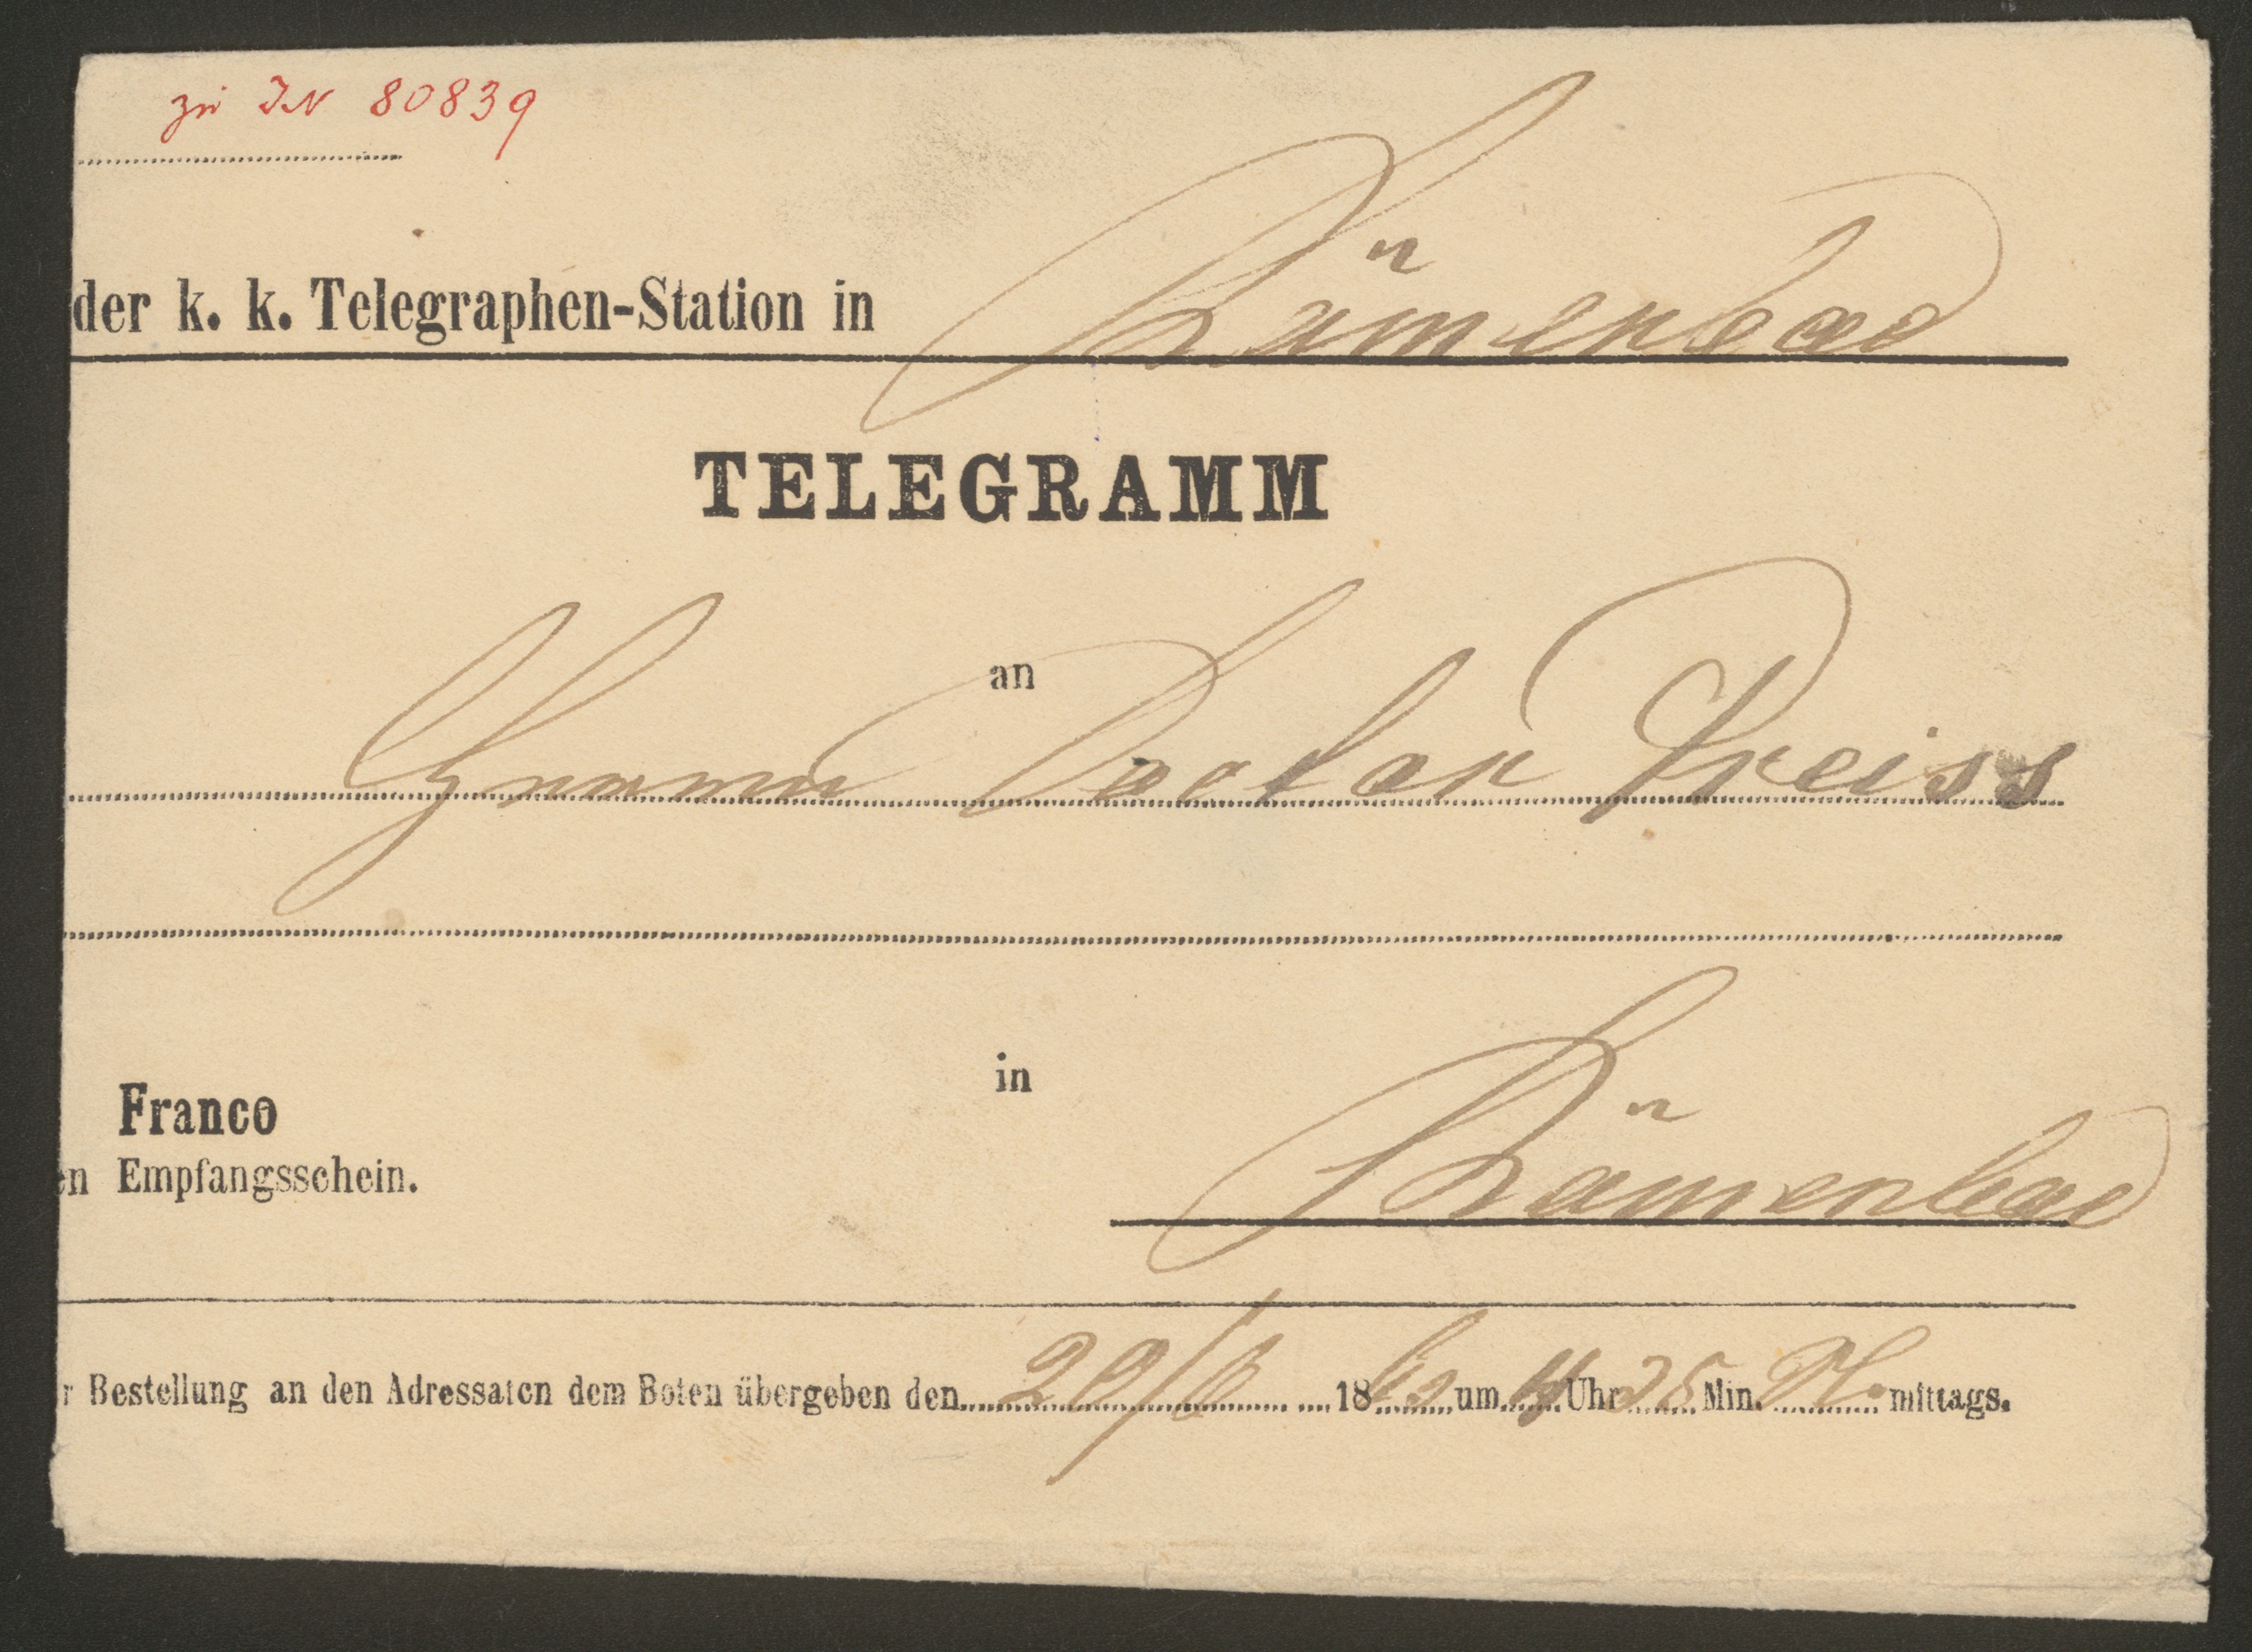 zu IN 80839
der k. k. Telegraphen-Station in Römerbad
TELEGRAMM
an
Herrn Doctor Preiss
in
Franco
Römerbad
en Empfangsschein.
r Bestellung an den Adressaten dem Boten übergeben den 29/6 18 um 4 Uhr 35 Min. N. mittags.